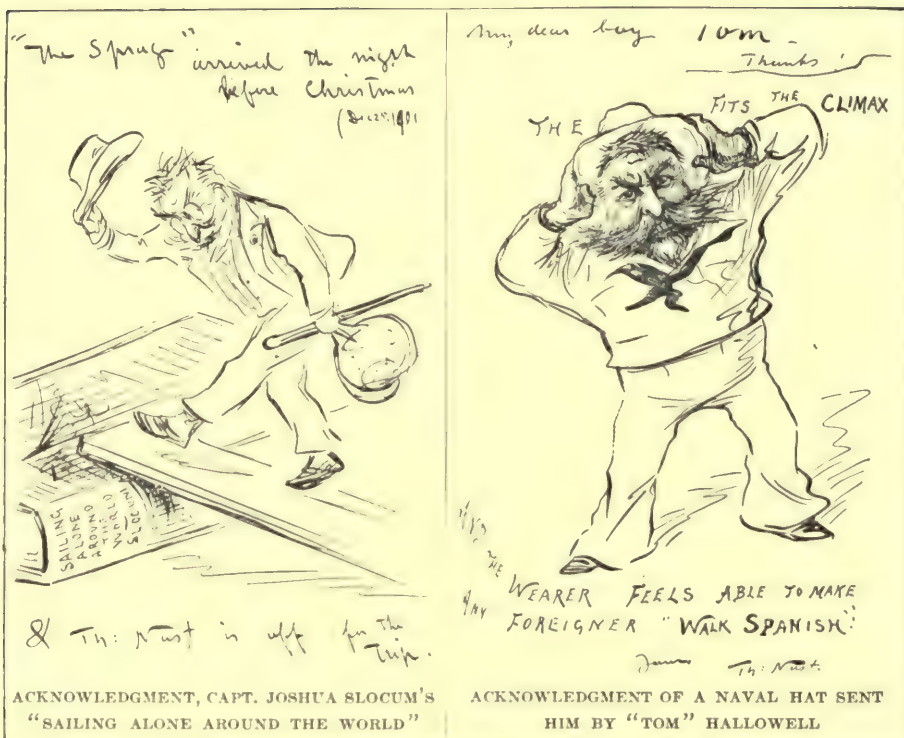 "The Spray" arrived the night
before Christmas
& Th: Nast is off for the
Trip.
SAILING
ALONE
AROUND
THE
WORLD
SLOCUM
ACKNOWLEDGMENT, CAPT. JOSHUA SLOCUM'S
"SAILING ALONE AROUND THE WORLD"
My dear boy Tom
Thanks!
THE FITS THE CLIMAX
AND THE WEARER FEELS ABLE TO MAKE
ANY FOREIGNER "WALK SPANISH"
Th: Nast.
ACKNOWLEDGMENT OF A NAVAL HAT SENT
HIM BY "TOM" HALLOWELL